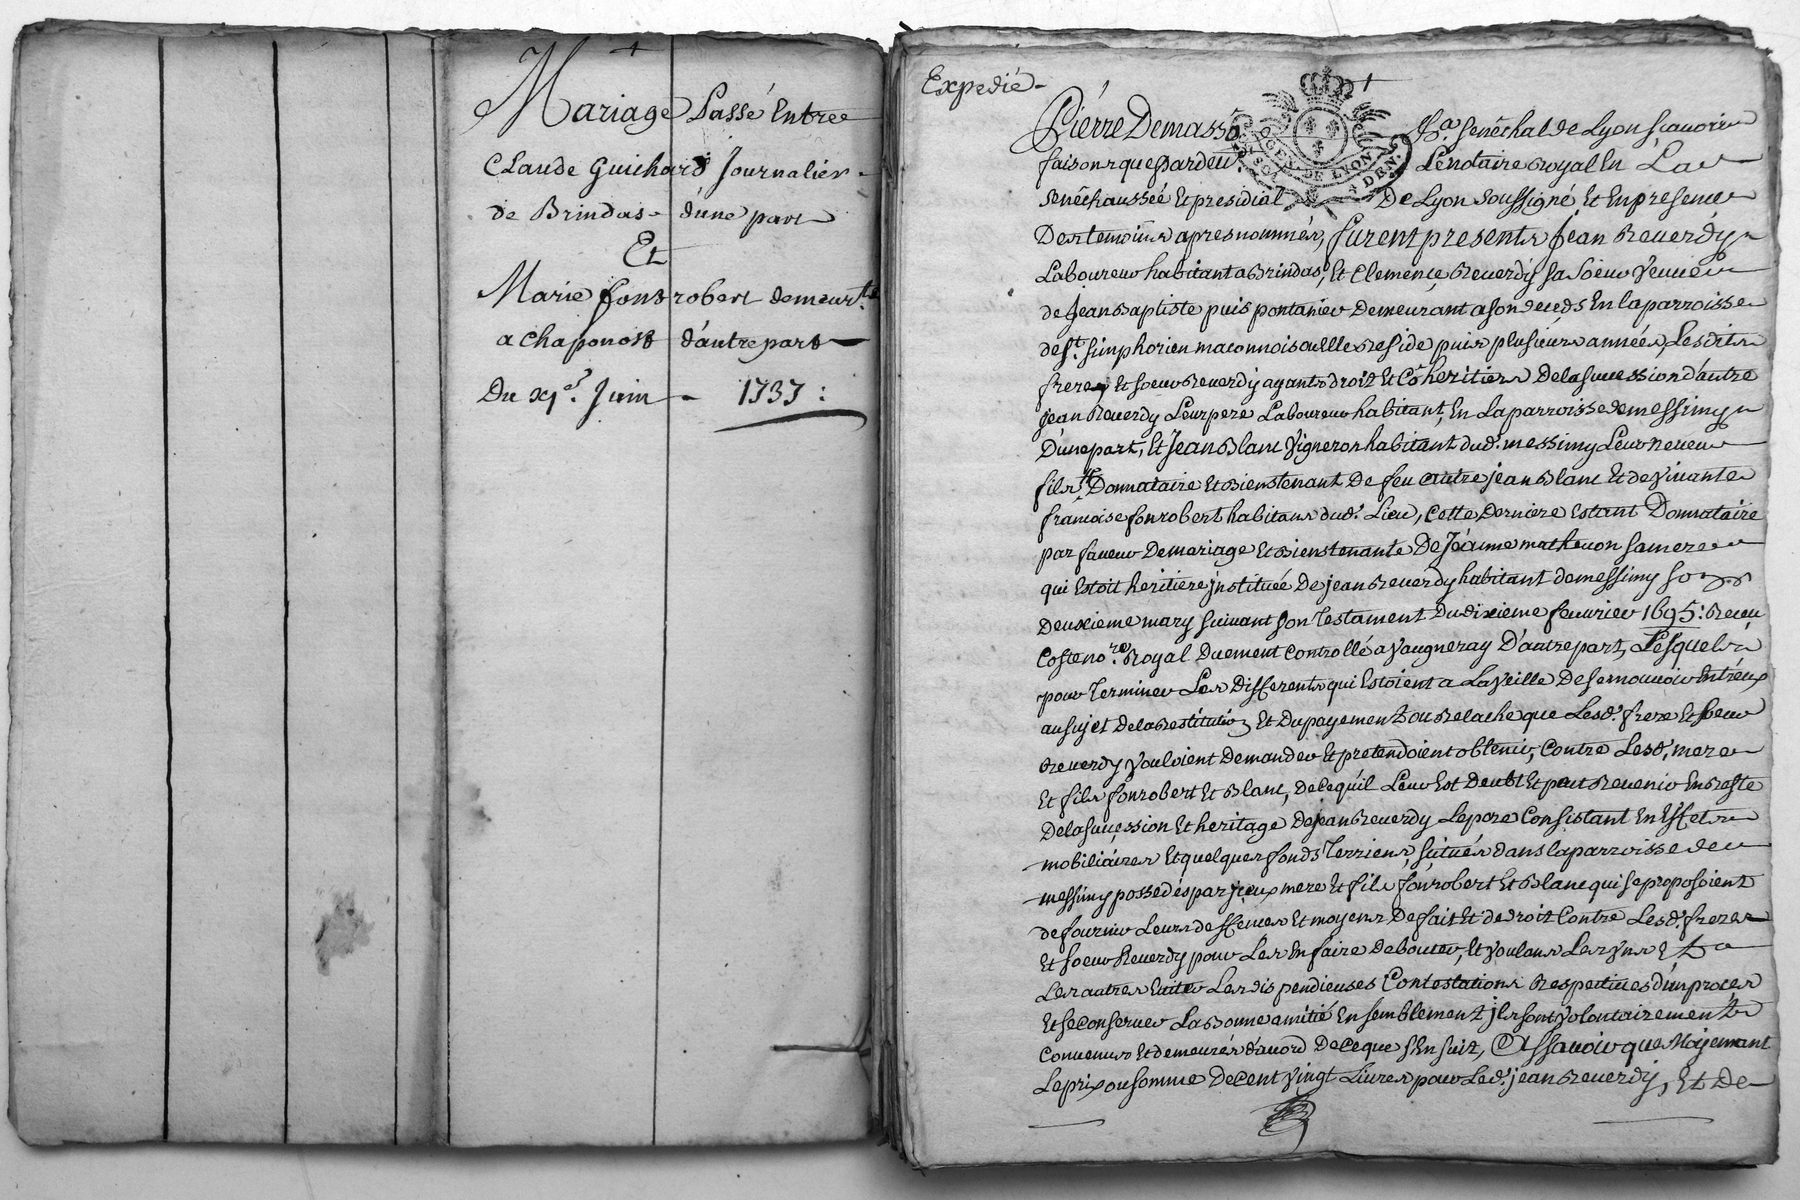 Mariage Passé Entre
Claude Guichard Journalier
de Brindas d'une part
Et
Marie fonsrobert demeurte
a Chaponost d'autre part
Du xje Juin - 1737 :
Expedié -
GEN. DE LYON
Pierre Demasso Senéchal de Lyon scavoir
faisons que pardevt Le notaire Royal En La
Senéchaussée Et presidial De Lyon soussigné Et En presence
Des temoins apres nommés, furent presents Jean Reverdy
Laboureur habitant a Brindas, Et Clemence Reverdy sa Soeur veuve
de Jean Baptiste puis pontanier Demeurant a son deceds En la parroisse
de St. simphorien maconnois ou Elle reside puis plusieurs années, Lesdits
frere Et soeur Reverdy ayants droit Et Cohéritiers De la succession d'autre
jean Reverdy Leur pere Laboureur habitant En La parroisse de messimy
D'une part, Et Jean Blanc vigneron habitant dud. messimy Leur neveu
fils Donnataire Et Bienstenant De feu autre jean Blanc Et de vivante
francoise fonrobert habitans dud. Lieu, Cette Derniere Estant Donnataire
par faveur De mariage Et Bienstenante De Jéanne mathevon sa mere
qui Estoit heritiere jnstituée De jean Reverdy habitant de messimy son
Deuxieme mary suivant son Testament Du dixieme fevrier 1695: Recu
Coste nore Royal Duement Controllé a Vaugneray D'autre part, Lesquels
pour Terminer Les Differents qui Estoient a La veille De se mouvoir Entréux
au sujet de la Restitution Et Du payement ou Relache que Lesd. frere Et soeur
Reverdy vouloient Demander Et pretendoient obtenir, Contre Lesd. mere
Et fils fonrobert Et Blanc, De ce qu'il Leur Est Deubt Et peut Revenir En Reste
De la succession Et heritage De jean Reverdy Le pere Consistant En Effets
mobiliaires Et quelques fonds Terriens, situés dans la parroisse de
messimy possedés par jceux mere Et fils fonrobert Et Blanc qui se proposoient
de fournir Leurs deffences Et moyens De fait Et de droit Contre Lesd. freres
Et soeur Reverdy pour Les En faire Debouter, Et voulans Les vns Et
Les autres Eviter Les dispendieuses Contestations Respectives d'un proces
Et se Conserver La Bonne amitié Ensemblement jls sont volontairement
Convenus Et demeurés d'accord De ce que s'En suit, Assavoir que Moyennant
Le prix ou somme De Cent vingt Livres pour Led. jean Reverdy, Et De